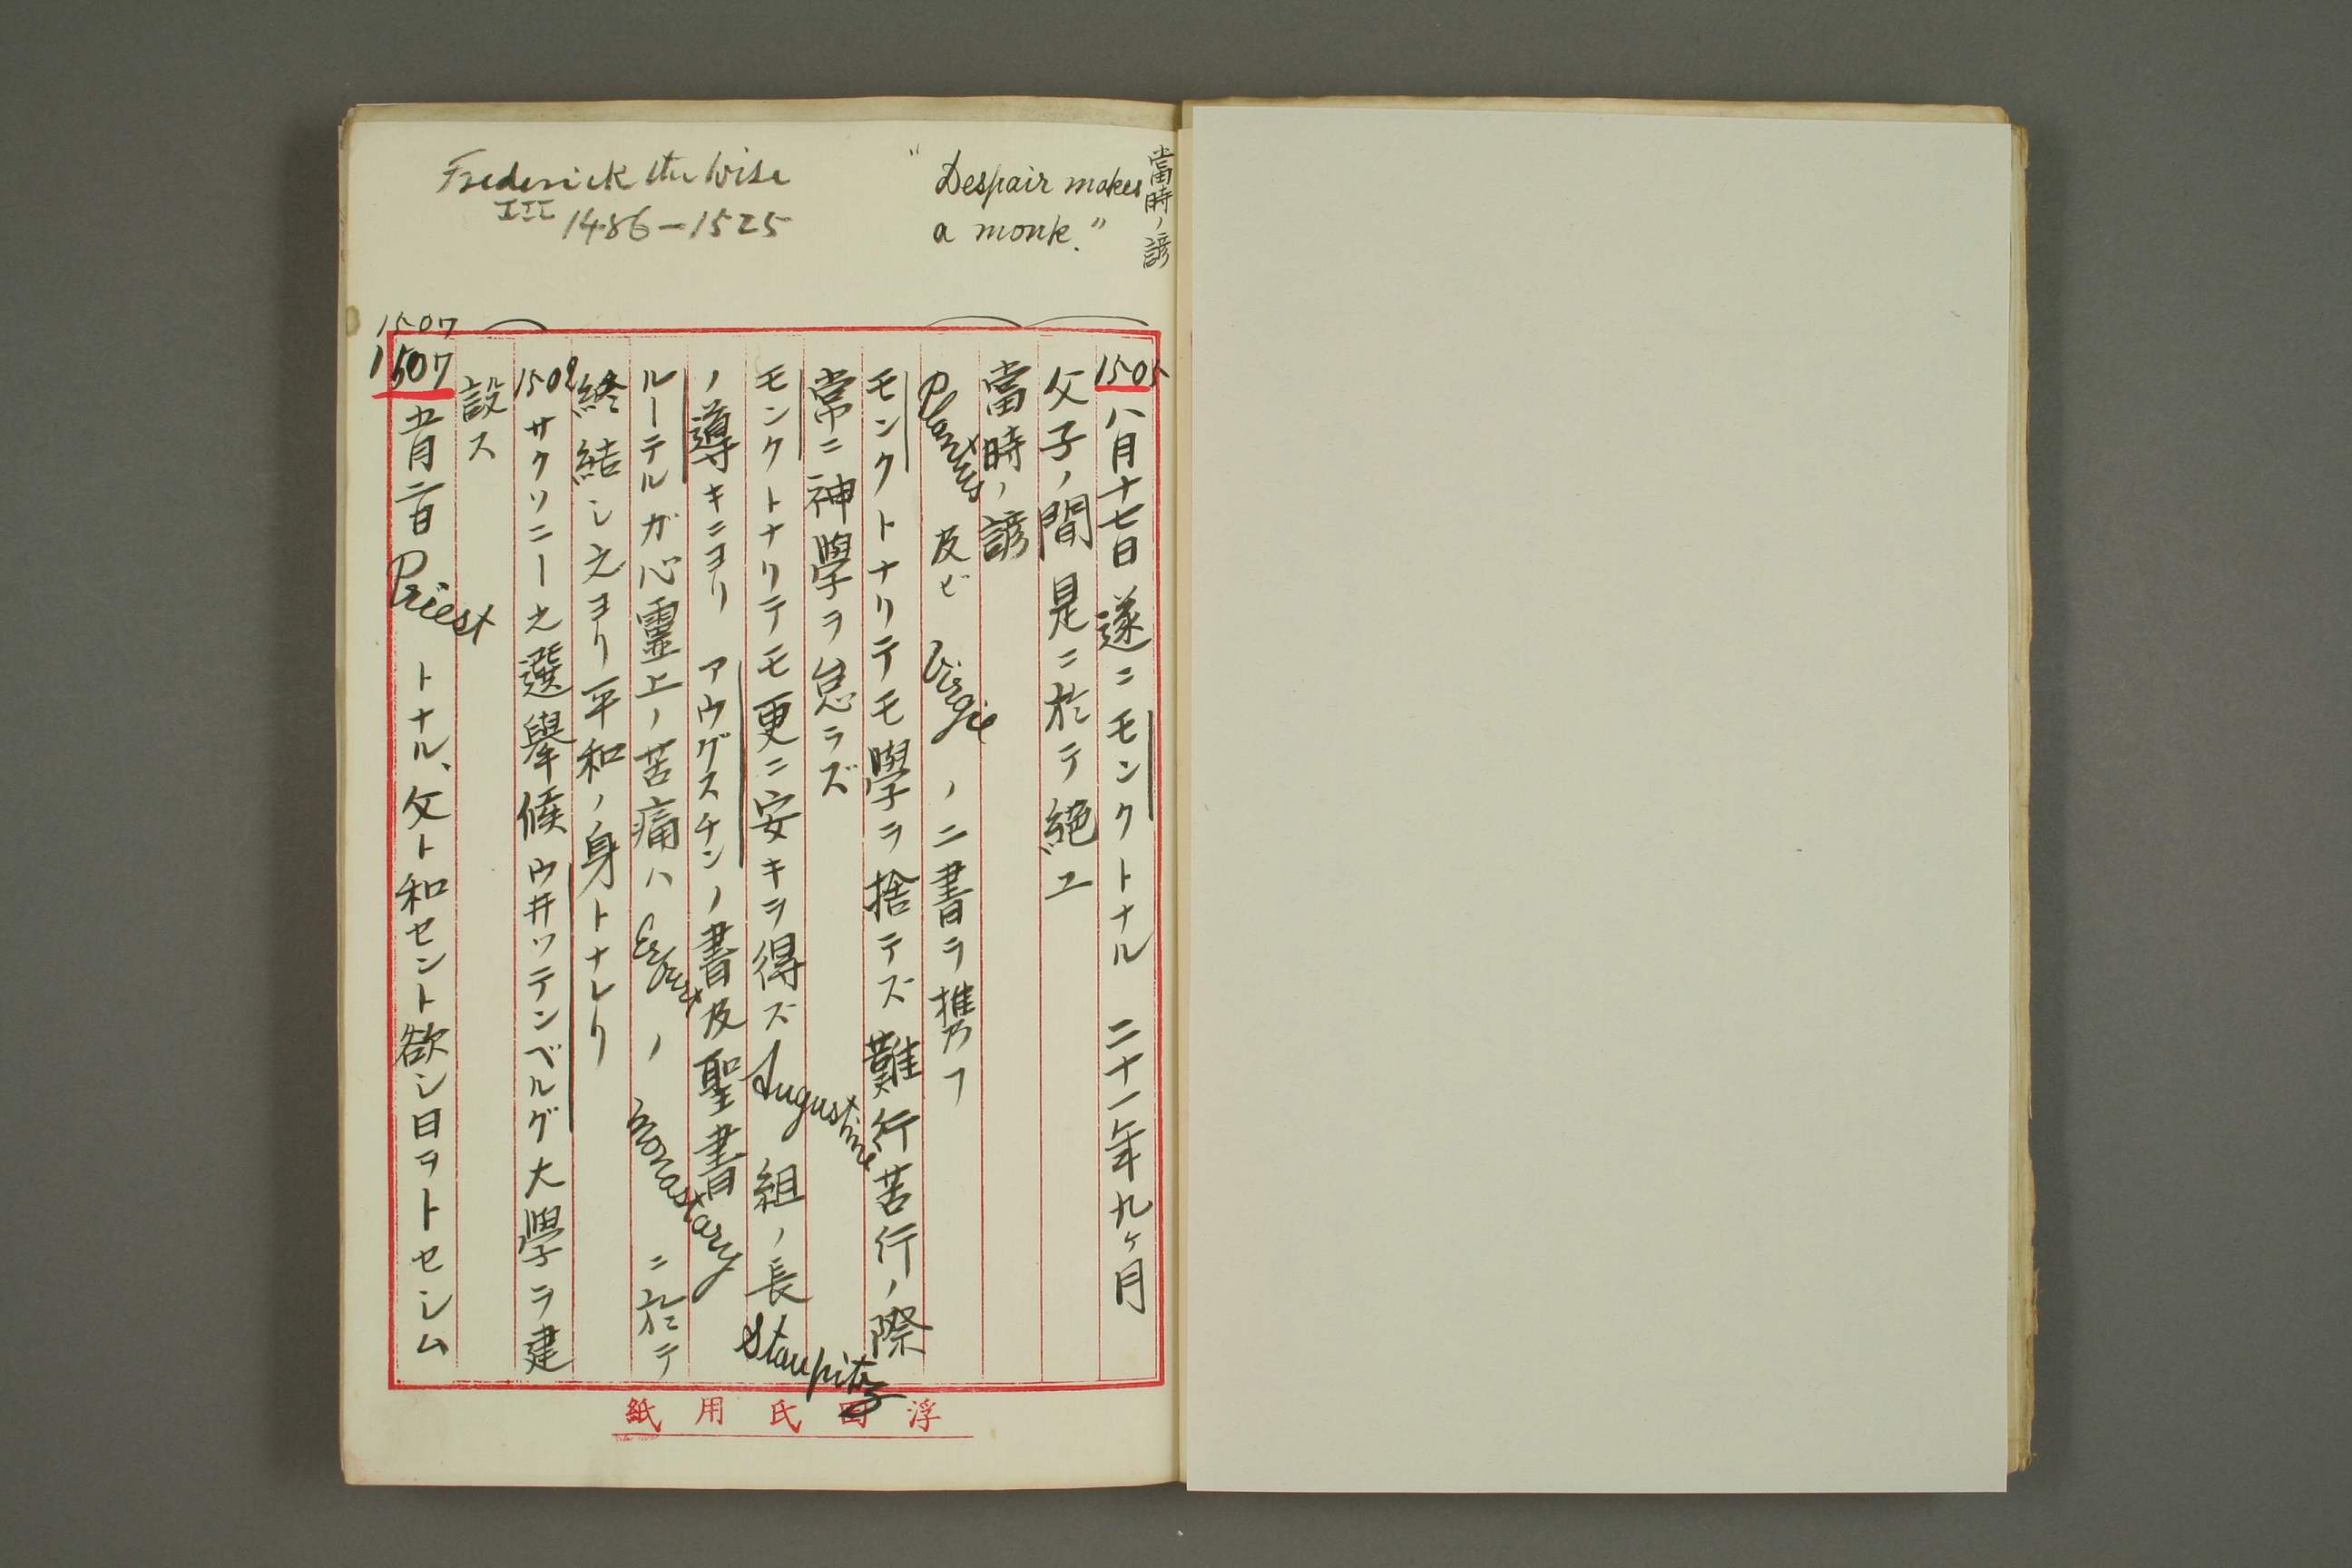 當時ノ諺
"Despair makes
a monk."
Frederick the Wise
III 1486-1525
1505 八月十七日遂ニモンクトナル 二十一年九ヶ月
父子ノ間是ニ於テ絶ユ
當時ノ諺
Plautus 及ビ Virgie ノ二書ヲ携フ
モンクトナリテモ學ヲ捨テズ難行苦行ノ際
常ニ神學ヲ怠ラズ
モンクトナリテモ更ニ安キヲ得ズ Augustine 組ノ長 Staupitz
ノ導キニヨリ アウグスチンノ書及聖書
ルーテルガ心靈上ノ苦痛ハ Erfurt ノ monastary ニ於テ
終結シ之ヨリ平和ノ身トナレリ
1502 サクソニー之選擧候ウ井ッテンベルグ大學ヲ建
設ス
1507
1507 五月二日 Priest トナル、父ト和セント欲シ日ヲトセシム
浮田氏用紙